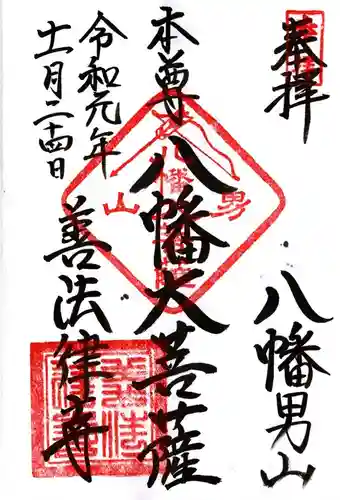 奉拝
八幡男山
本尊
八幡大菩薩
令和元年
十一月二十四日
善法律寺
八幡
男山